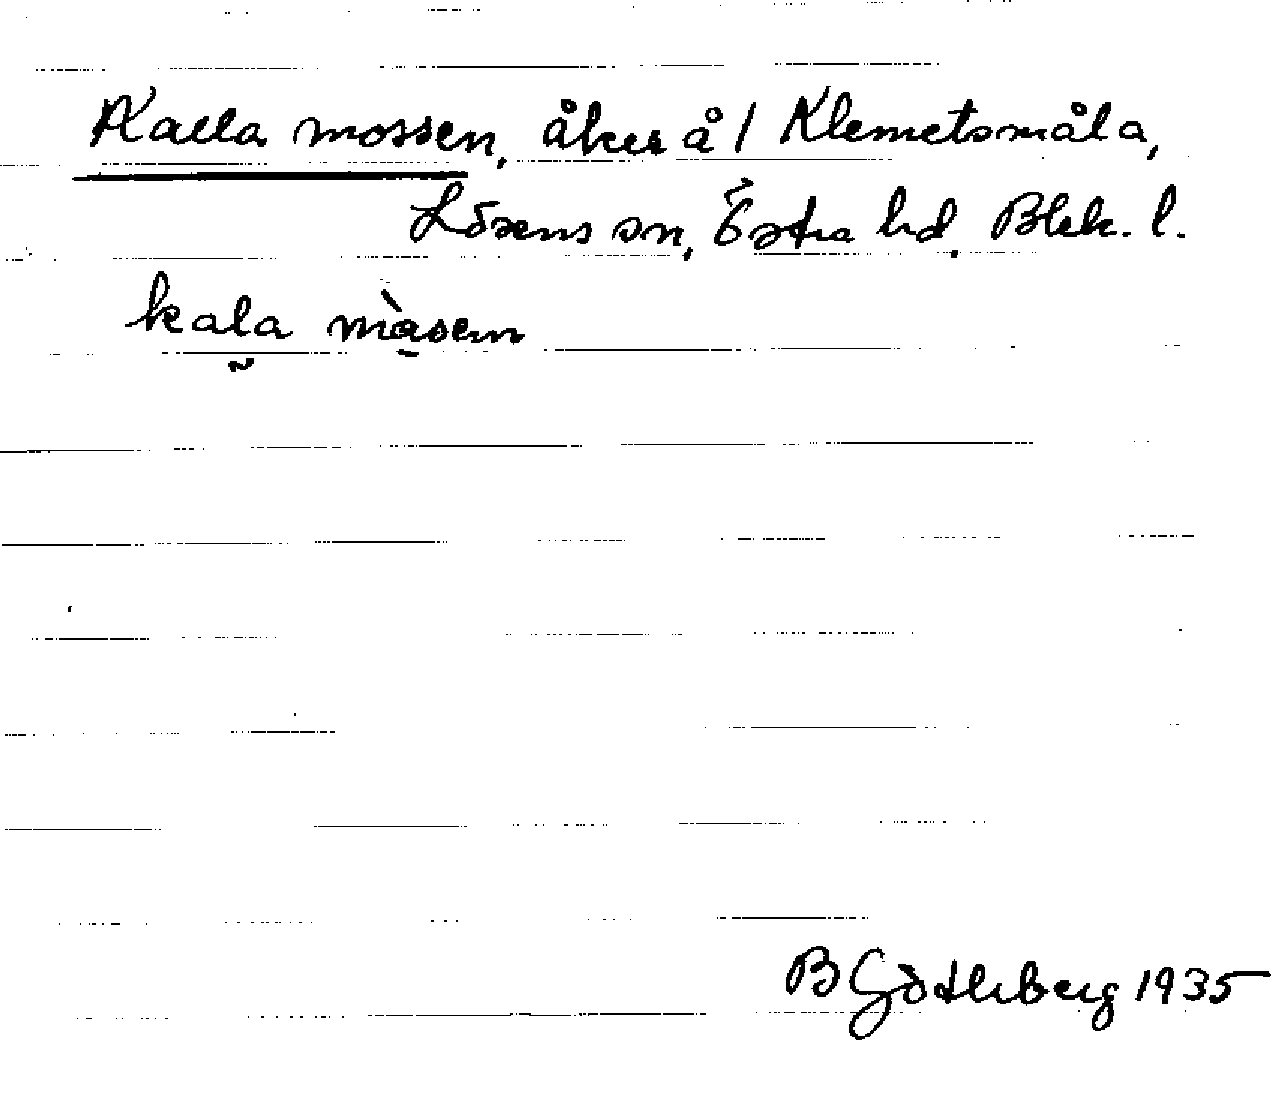 Kalla mossen, åker å 1 Klemetsmåla,
Lösens sn, Östra hd, Blek. l.
kala màsen
B Götleberg 1935